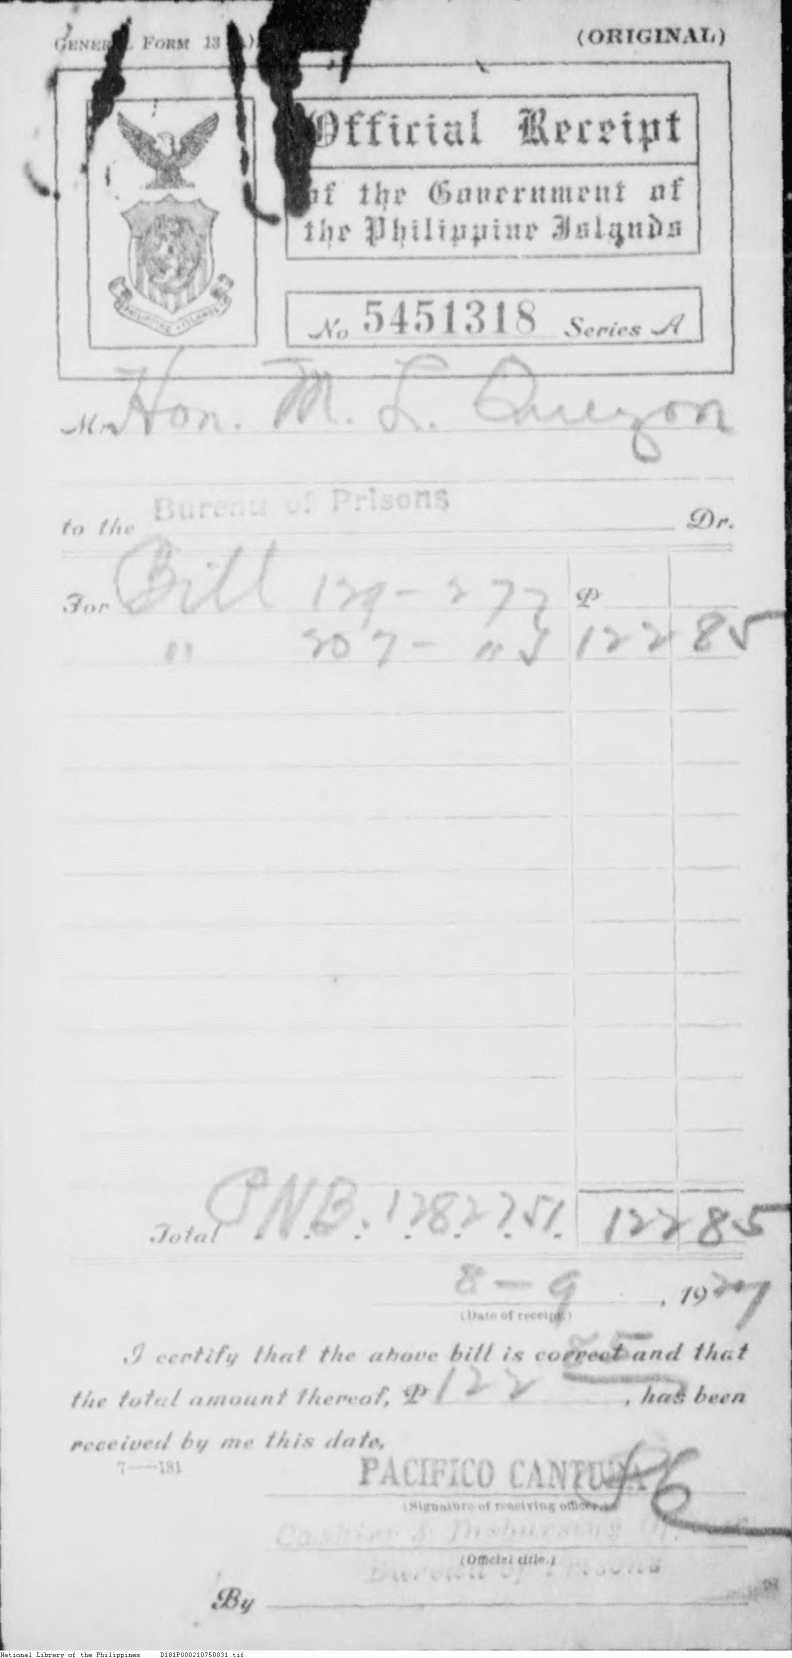 GENERAL FORM 13 (A)
(ORIGINAL)
Official Receipt
of the Government of
the Philippine Islands
PHILIPPINE ISLANDS
No 5451318 Series A
Mr. Hon. M. L. Quezon
to the Bureau of Prisons Dr.
For Bill 129 - 277 ₱
" 207 - " 122 85
Total P.N.B. 1282751. 122 85
8 - 9, 1927
(Date of receipt)
I certify that the above bill is correct and that
the total amount thereof, ₱ 122 85, has been
received by me this date.
7—181
PACIFICO CANTURA
(Signature of receiving officer.)
Cashier & Disbursing Officer
(Official title.)
Bureau of Prisons
By
National Library of the Philippines D181P000210750031.tif